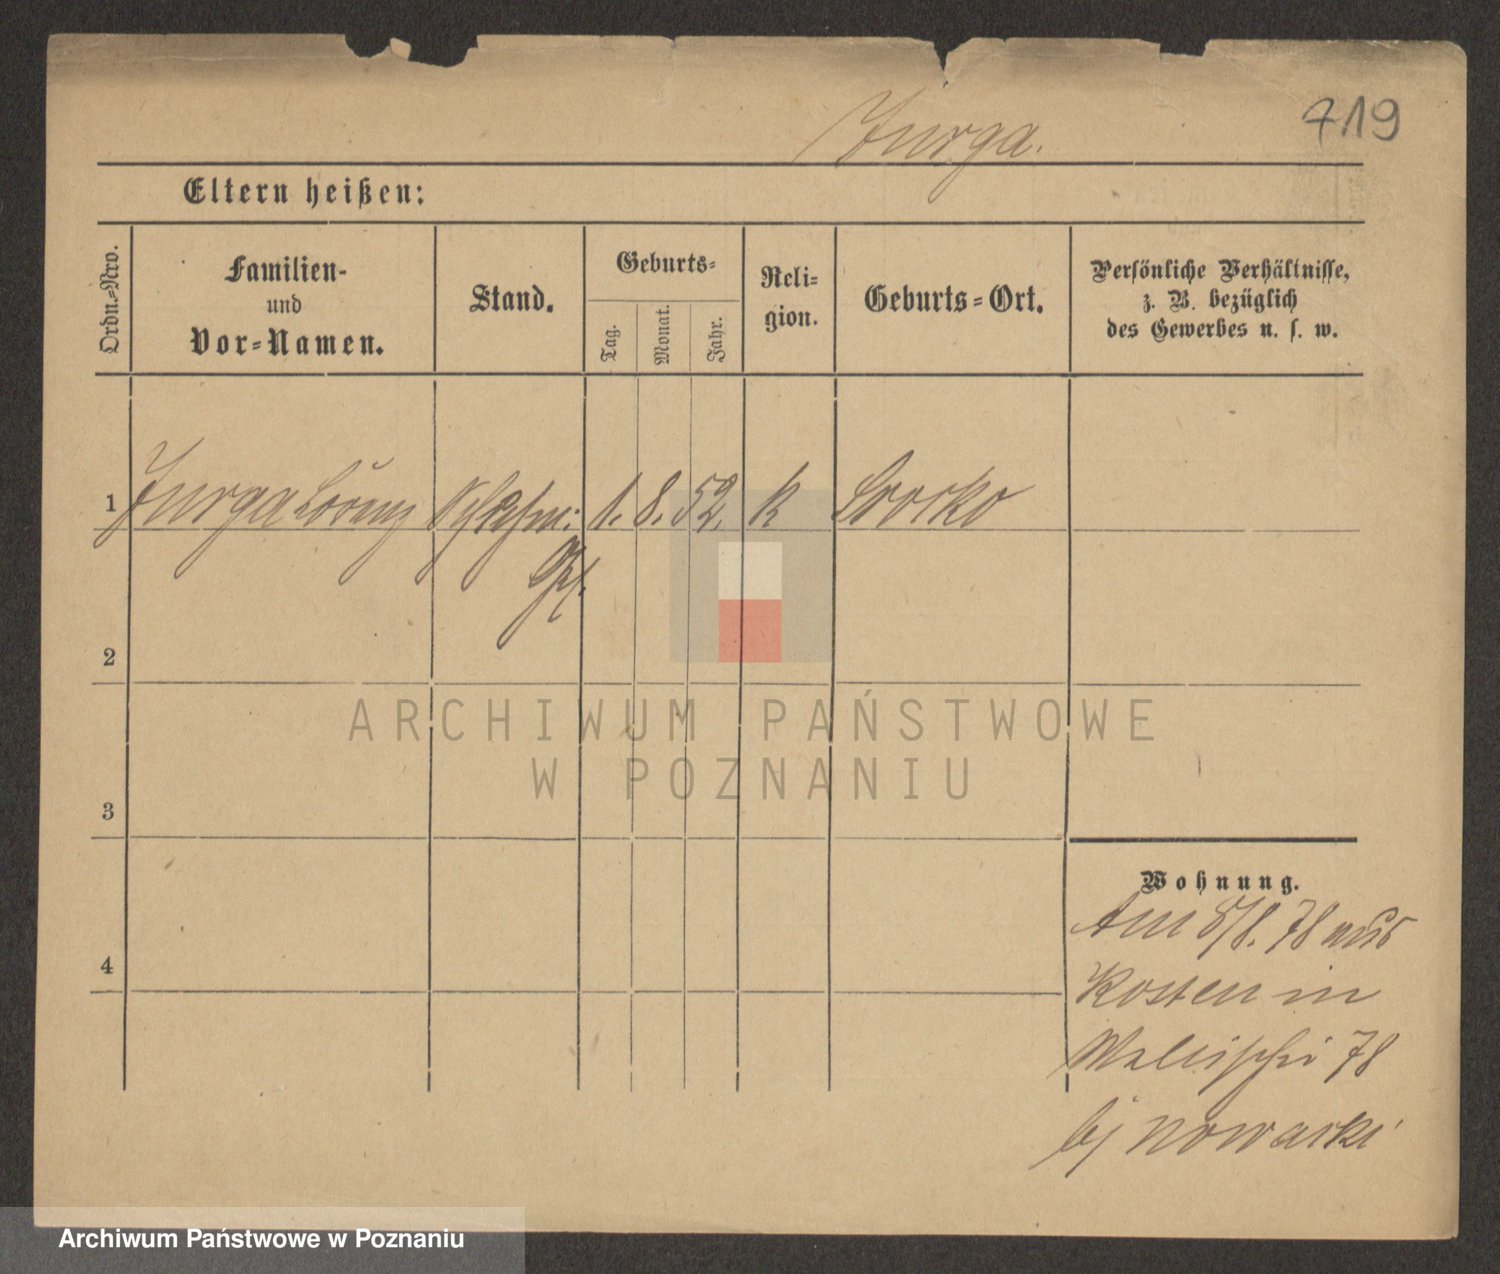 719
Jurga.
Eltern heißen:
Ordn.=Nro.
Familien-
und
Vor=Namen.
Stand.
Geburts=
Tag.
Monat.
Jahr.
Reli=
gion.
Geburts=Ort.
Persönliche Verhältnisse,
z. B. bezüglich
des Gewerbes u. s. w.
1 Jurga Lorenz 1. 8. 52. k
2
3
4
Wohnung.
Am 5/8. 78 aus
Kosten in
Wallischei 78
bj Nowacki
ARCHIWUM PAŃSTWOWE
W POZNANIU
Archiwum Państwowe w Poznaniu